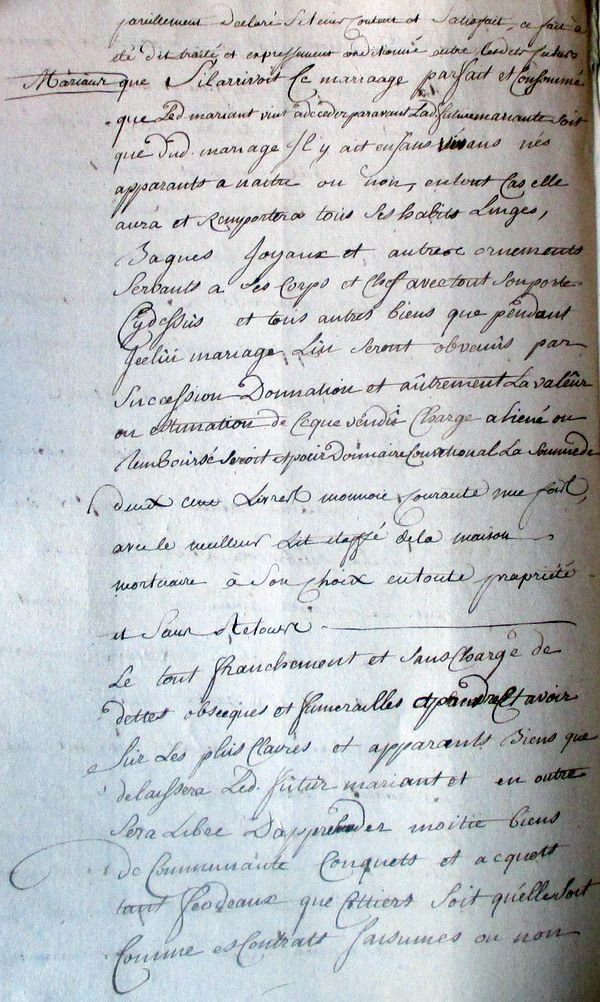 pareillement declaré Se tenir Content et Satisfait, ce fait a
été dit traité et expressément conditionné entre lesdits futurs
Marians que S'il arrivoit Ce mariaage parfait et Consommé
que Led. mariant vint adecéder paravant Lad. future mariante soit
que dud. mariage Il y ait enfans vivans nés
apparants a naitre ou non, entout Cas elle
aura et Remportera tous ses habits Linges,
Bagues Joyaux et autres ornements
Servants a ses Corps et Chef avec tout son porte
Cydessus et tous autres biens que pendant
Icelui mariage Lui seront obvenus par
Succession Donnation et aûtrement La valeur
ou estimation de Ceque vendu Chargé aliené ou
Remboursé seroit et pour Douaire Conventional La Somme de
deux cent Livres monnoie Courante une fois,
avec le meilleur Lit etoffé dela maison
mortuaire à Son Choix entoute propriété
et Sans Retour
Le tout franchement et sans Charge de
dettes obsecques et funerailles et prendre Et avoir
Sur Les plus Claires et apparants Biens que
delaissera Led. futur mariant et en outre
Sera Libre Dapprehender moitié biens
De Communaute Conquets et acquets
tant feodeaux que Cottiers Soit qu'elle soit
Comme es Contrats